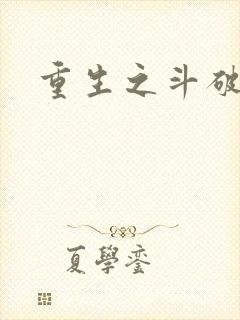 重生之斗破
夏學銮